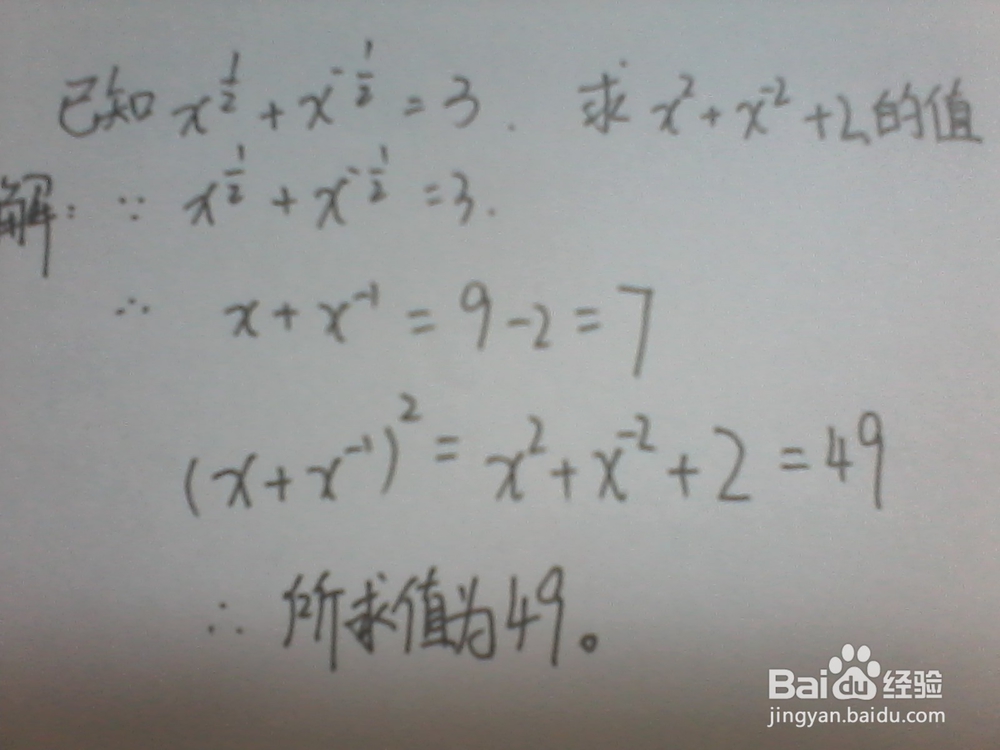 已知 x^{\frac{1}{2}} + x^{-\frac{1}{2}} = 3. 求 x^2 + x^{-2} + 2 的值
解: ∵ x^{\frac{1}{2}} + x^{-\frac{1}{2}} = 3.
∴ x + x^{-1} = 9 - 2 = 7
(x + x^{-1})^2 = x^2 + x^{-2} + 2 = 49
∴ 所求值为49。
Baidu经验
jingyan.baidu.com